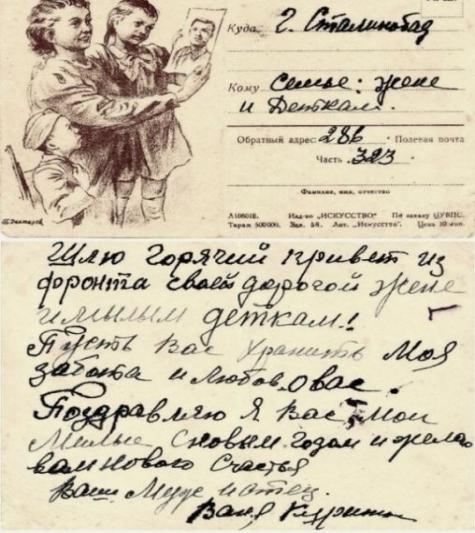 Куда г. Сталинабад
Кому семье: жене
и деткам.
Обратный адрес: 286 Полевая почта
Часть 323
Фамилия, имя, отчество
Изд-во „ИСКУССТВО" По заказу ЦУВПС.
Тираж 500000. Зак. 58. Лит. „Искусство". Цена 30 коп.
Шлю горячий привет из
фронта своей дорогой жене
и милым деткам!
Пусть Вас хранить моя
забота и любов о вас.
Поздравляю я Вас мои
милые с новым годом и желаю
вам нового счастья
Ваш муж и отец.
Ваня